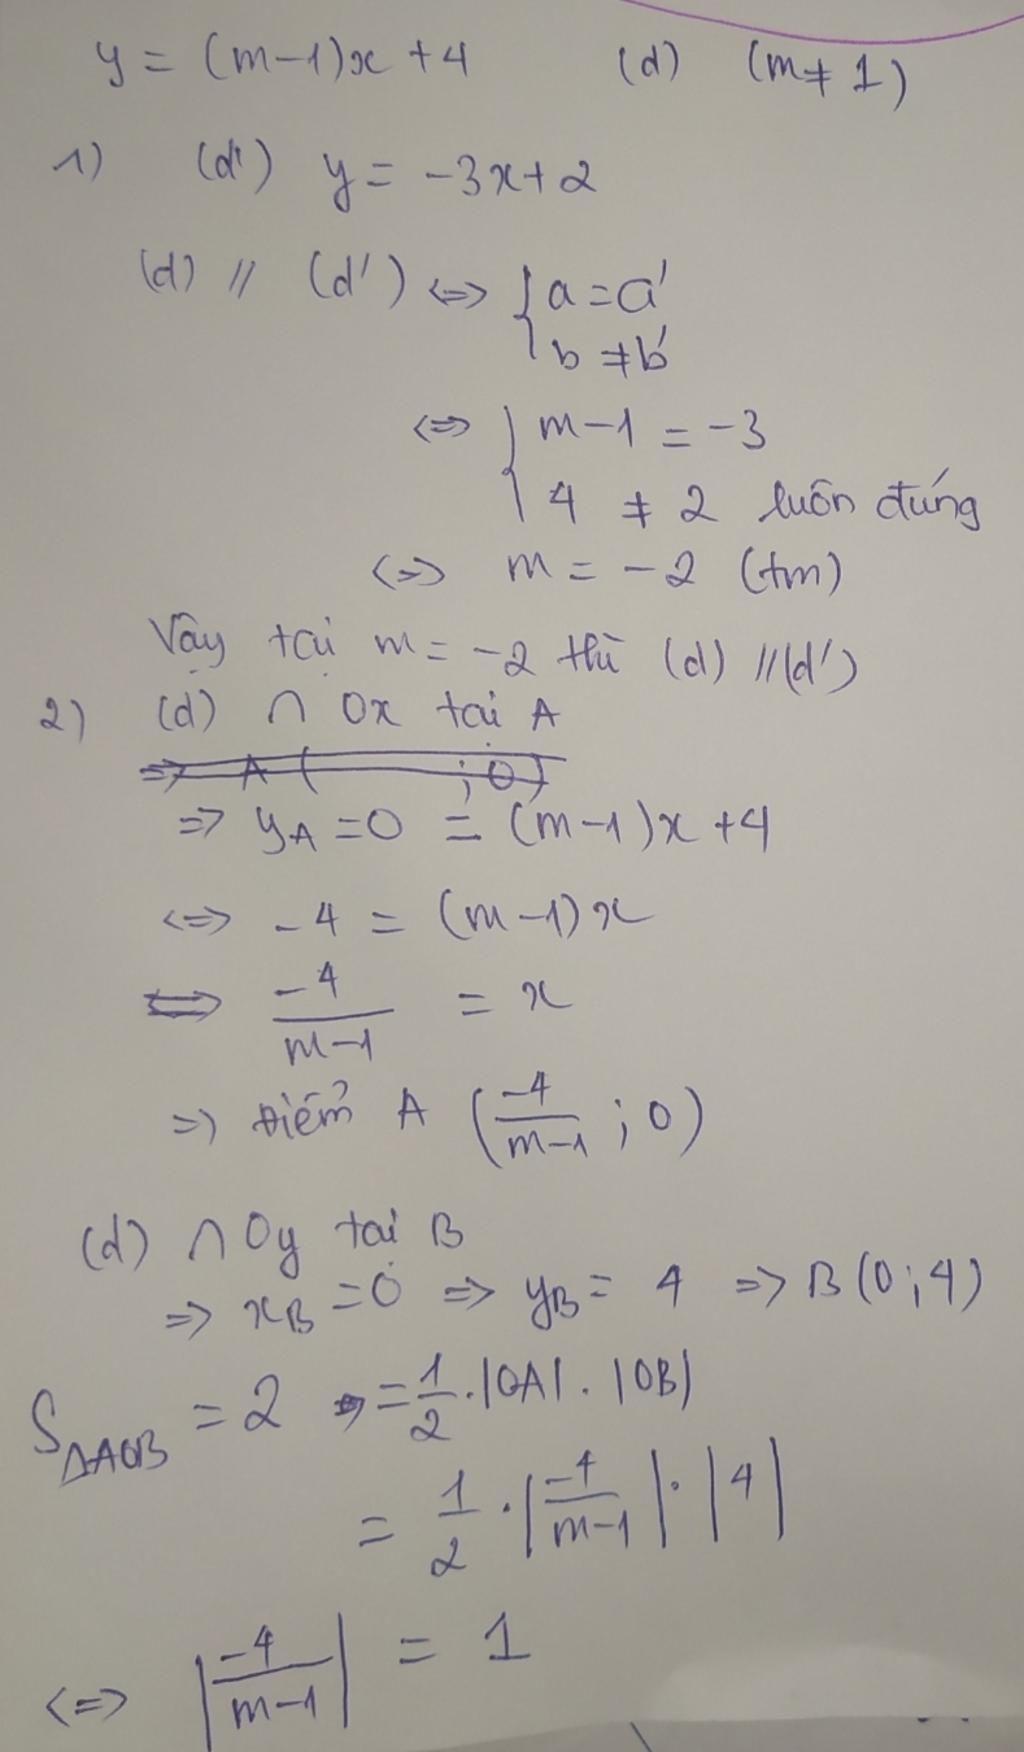 y = (m-1)x + 4 (d) (m ≠ 1)
1) (d') y = -3x + 2
(d) // (d') <=> { a = a'
b ≠ b'
<=> { m-1 = -3
4 ≠ 2 luôn đúng
<=> m = -2 (tm)
Vậy tại m = -2 thì (d) // (d')
2) (d) ∩ Ox tại A
=> A ( ; 0)
=> yA = 0 = (m-1)x + 4
<=> -4 = (m-1)x
<=> -4/(m-1) = x
=> điểm A (-4/(m-1) ; 0)
(d) ∩ Oy tại B
=> xB = 0 => yB = 4 => B (0; 4)
SΔAOB = 2 = 1/2 . |OA| . |OB|
= 1/2 . |-4/(m-1)| . |4|
<=> |-4/(m-1)| = 1